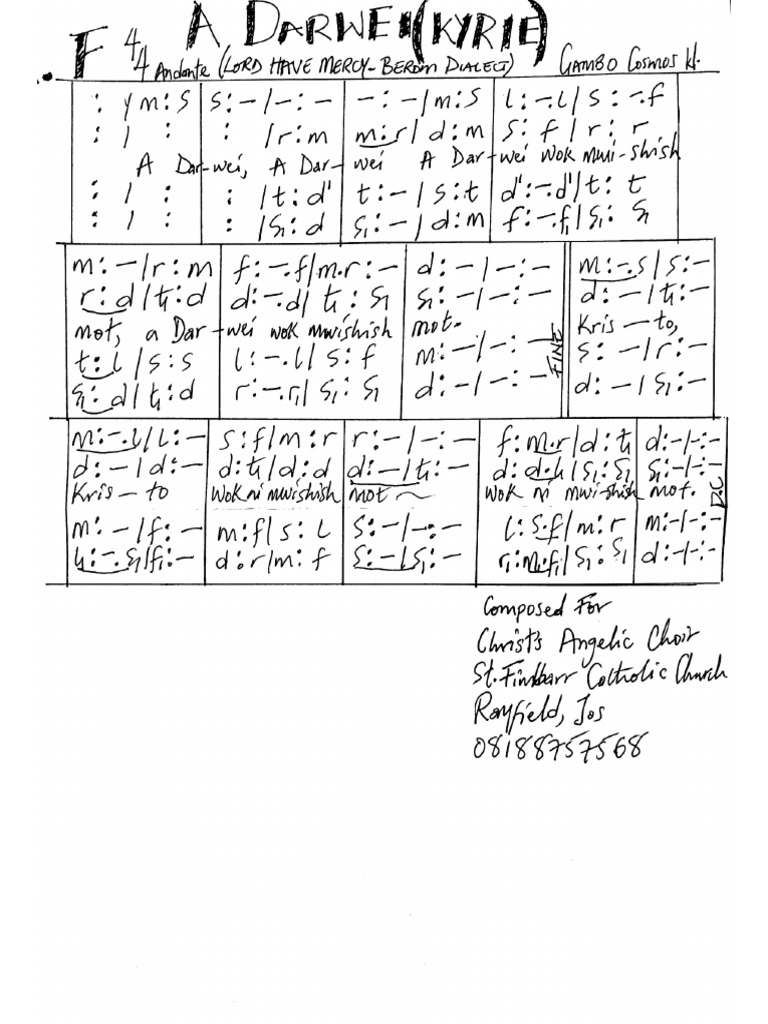 A DARWEI (KYRIE)
F 4/4 Andante (LORD HAVE MERCY - BEROM DIALECT) GAMBO COSMOS H.
: / m : s | s : – / – : – | – : – / m : s | l : –.l / s : –.f
: / : | : / r : m | m : r / d : m | s : f / r : r
A Dar-wei, A Dar-wei A Dar-wei wok mwi-shish
: / : | : / t : d' | t : – / s : t | d' : –.d' / t : t
: / : | : / s₁ : d | s₁ : – / d : m | f : –.f₁ / s₁ : s₁
m : – / r : m | f : –.f / m.r : – | d : – / – : – | m : –.s / s : –
r : d / t₁ : d | d : –.d / t₁ : s₁ | s₁ : – / – : – | d : – / t₁ : –
mot, a Dar-wei wok mwishish mot. FINE Kris – to,
t : l / s : s | l : –.l / s : f | m : – / – : – | s : – / r : –
s₁ : d / t₁ : d | r : –.r₁ / s₁ : s₁ | d : – / – : – | d : – / s₁ : –
m : –.l / l : – | s : f / m : r | r : – / – : – | f : m.r / d : t₁ | d : – / – : –
d : – / d : – | d : t₁ / d : d | d : – / t₁ : – | d : d.l₁ / s₁ : s₁ | s₁ : – / – : –
Kris – to wok ni mwishish mot ~ wok ni mwi-shish mot. D.C
m : – / f : – | m : f / s : l | s : – / – : – | l : s.f / m : r | m : – / – : –
l₁ : –.s₁ / f₁ : – | d : r / m : f | s : – / s₁ : – | r₁ : m₁.f₁ / s₁ : s₁ | d : – / – : –
Composed For
Christ's Angelic Choir
St. Finbarr Catholic Church
Rayfield, Jos
08188757568